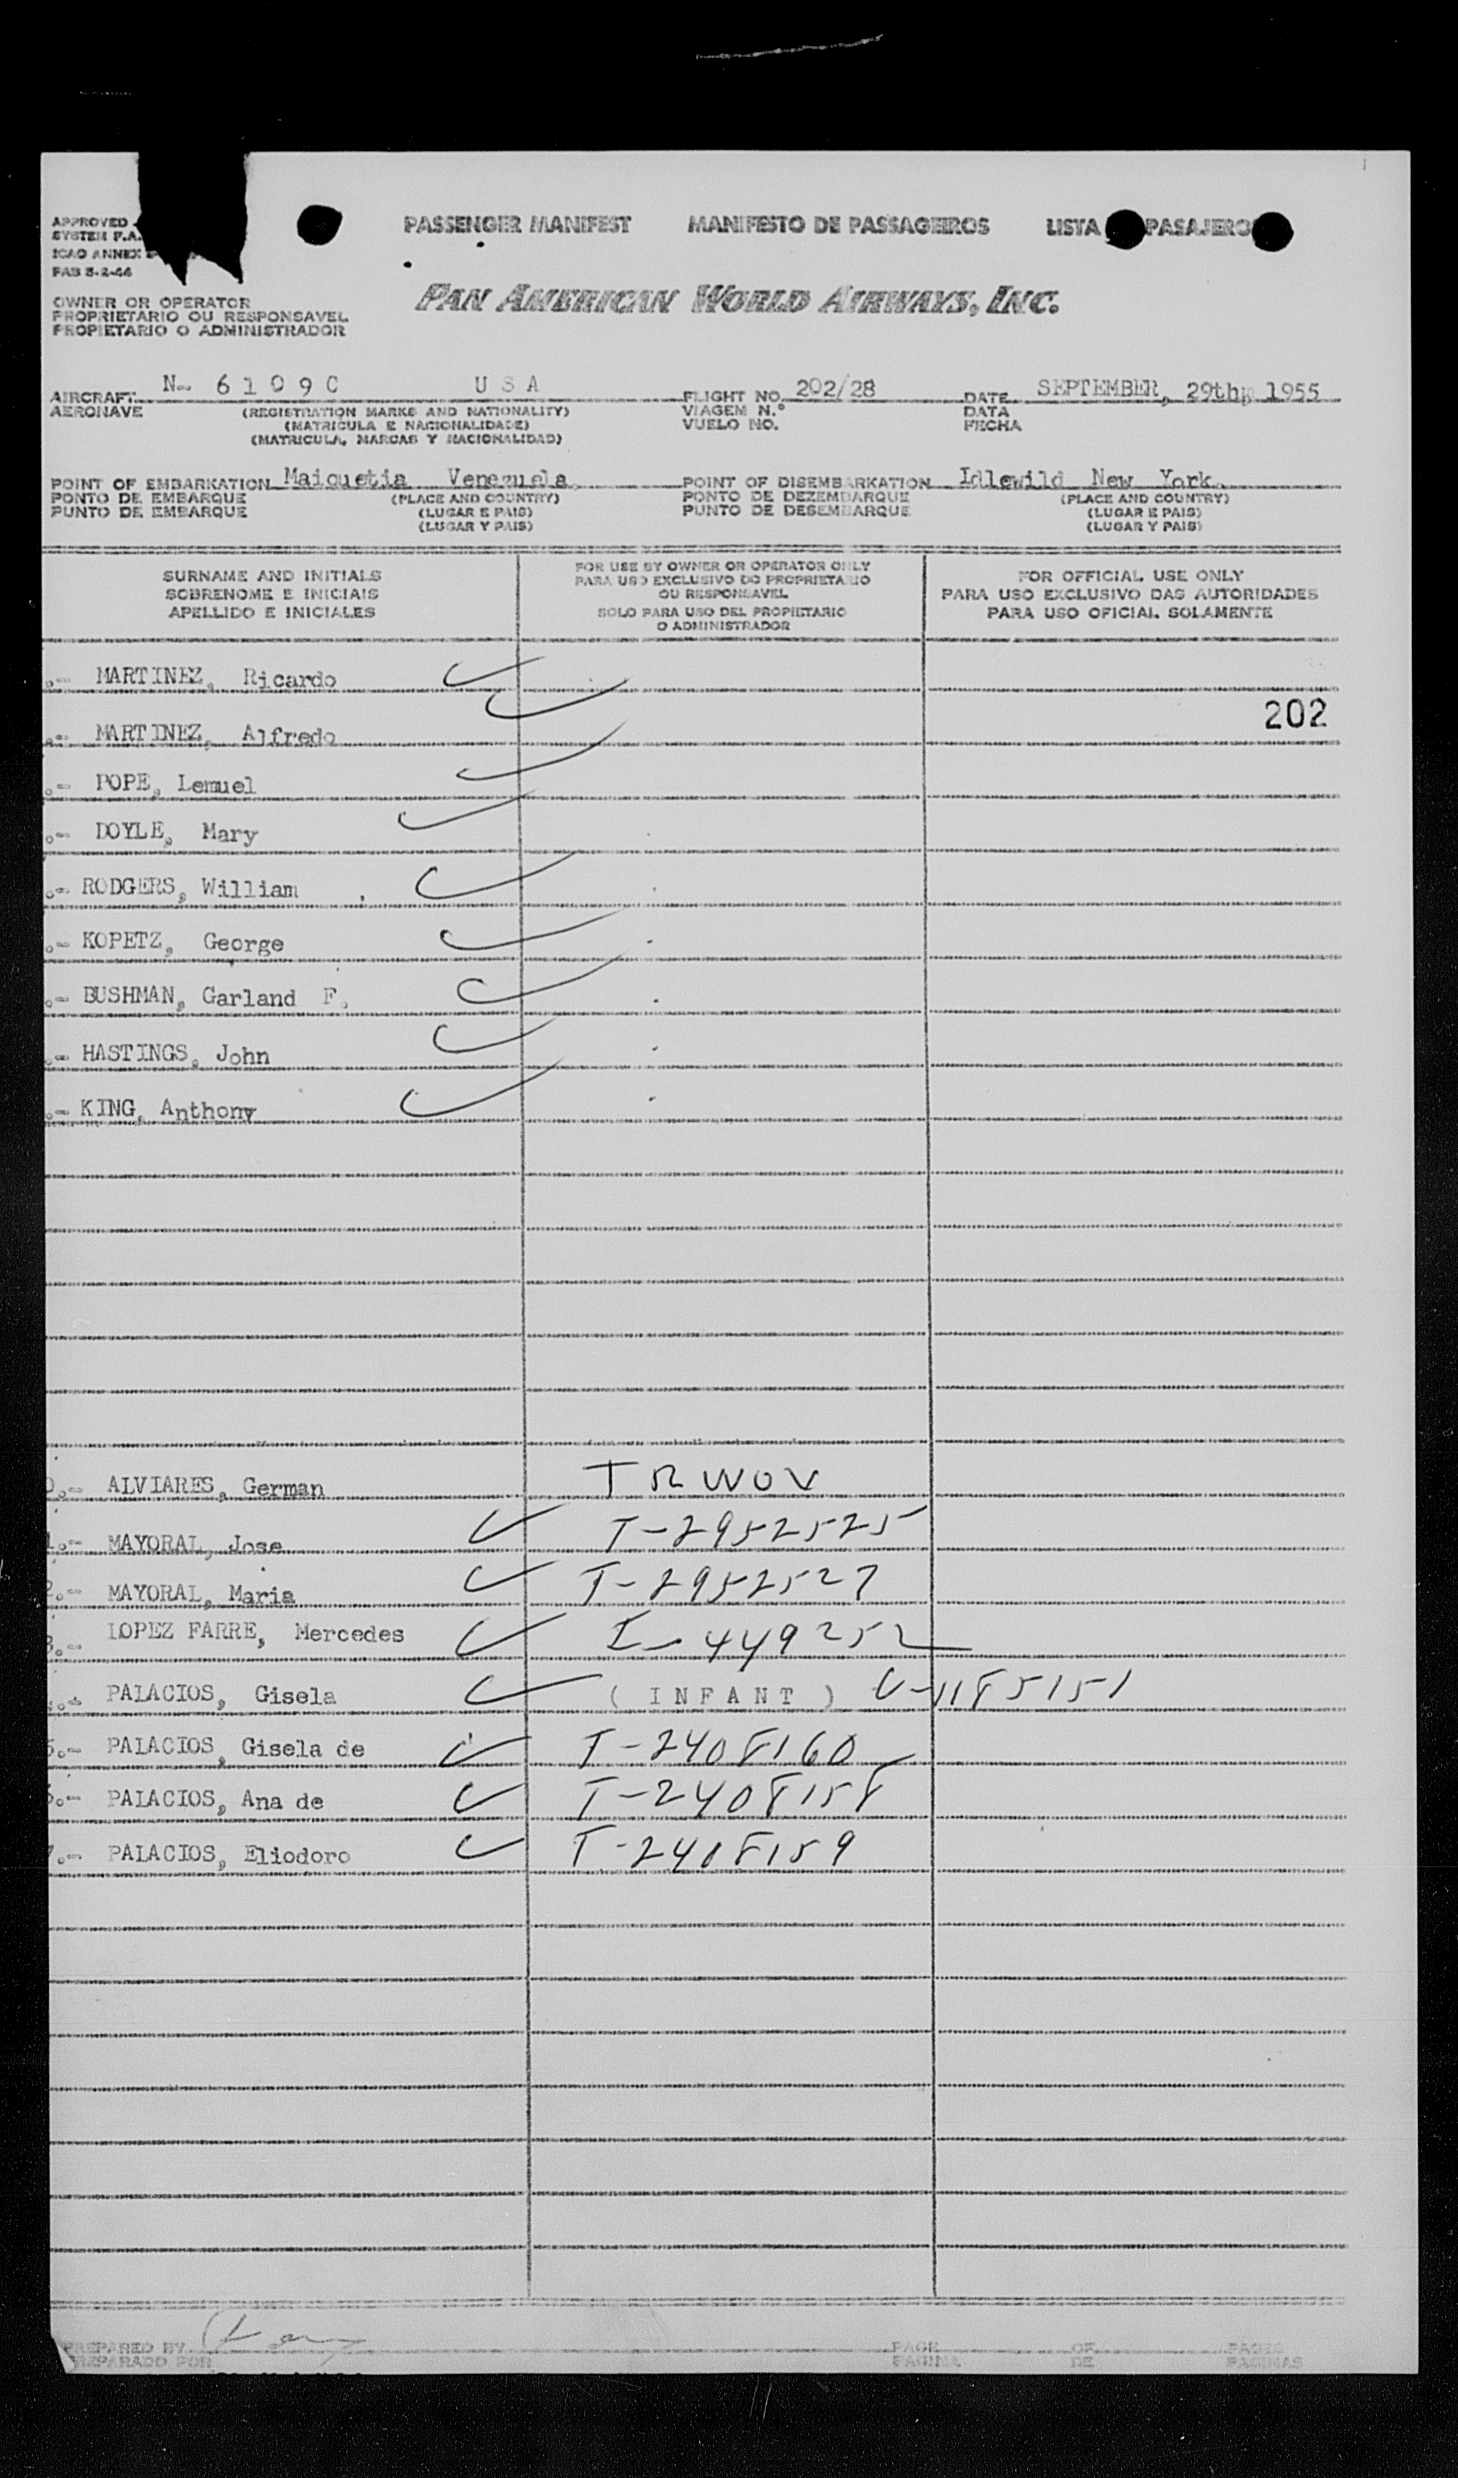 PASSENGER MANIFEST MANIFESTO DE PASSAGEIROS LISTA PASAJEROS
APPROVED
SYSTEM P.A.
ICAO ANNEX
PAB 5-2-46
PAN AMERICAN WORLD AIRWAYS, INC.
OWNER OR OPERATOR
PROPRIETARIO OU RESPONSAVEL
PROPIETARIO O ADMINISTRADOR
AIRCRAFT N- 6 1 0 9 C U S A FLIGHT NO. 202/28 DATE SEPTEMBER, 29th, 1955
AERONAVE (REGISTRATION MARKS AND NATIONALITY) VIAGEM N.º DATA
(MATRICULA E NACIONALIDADE) VUELO NO. FECHA
(MATRICULA, MARCAS Y NACIONALIDAD)
POINT OF EMBARKATION Maiquetia Venezuela. POINT OF DISEMBARKATION Idlewild New York.
PONTO DE EMBARQUE (PLACE AND COUNTRY) PONTO DE DEZEMBARQUE (PLACE AND COUNTRY)
PUNTO DE EMBARQUE (LUGAR E PAIS) PUNTO DE DESEMBARQUE (LUGAR E PAIS)
(LUGAR Y PAIS) (LUGAR Y PAIS)
SURNAME AND INITIALS
SOBRENOME E INICIAIS
APELLIDO E INICIALES
FOR USE BY OWNER OR OPERATOR ONLY
PARA USO EXCLUSIVO DO PROPRIETARIO
OU RESPONSAVEL
SOLO PARA USO DEL PROPIETARIO
O ADMINISTRADOR
FOR OFFICIAL USE ONLY
PARA USO EXCLUSIVO DAS AUTORIDADES
PARA USO OFICIAL SOLAMENTE
.- MARTINEZ, Ricardo
202
.- MARTINEZ, Alfredo
.- POPE, Lemuel
.- DOYLE, Mary
.- RODGERS, William
.- KOPETZ, George
.- BUSHMAN, Garland F.
.- HASTINGS, John
.- KING, Anthony
0.- ALVIARES, German T R W O V
1.- MAYORAL, Jose T-2952525
2.- MAYORAL, Maria T-2952527
3.- LOPEZ FARRE, Mercedes I-449252
.- PALACIOS, Gisela ( I N F A N T ) V-1185151
5.- PALACIOS, Gisela de T-2408160
6.- PALACIOS, Ana de T-2408158
7.- PALACIOS, Eliodoro T-2408159
PREPARED BY PAGE OF PAGES
PREPARADO POR PAGINA DE PAGINAS